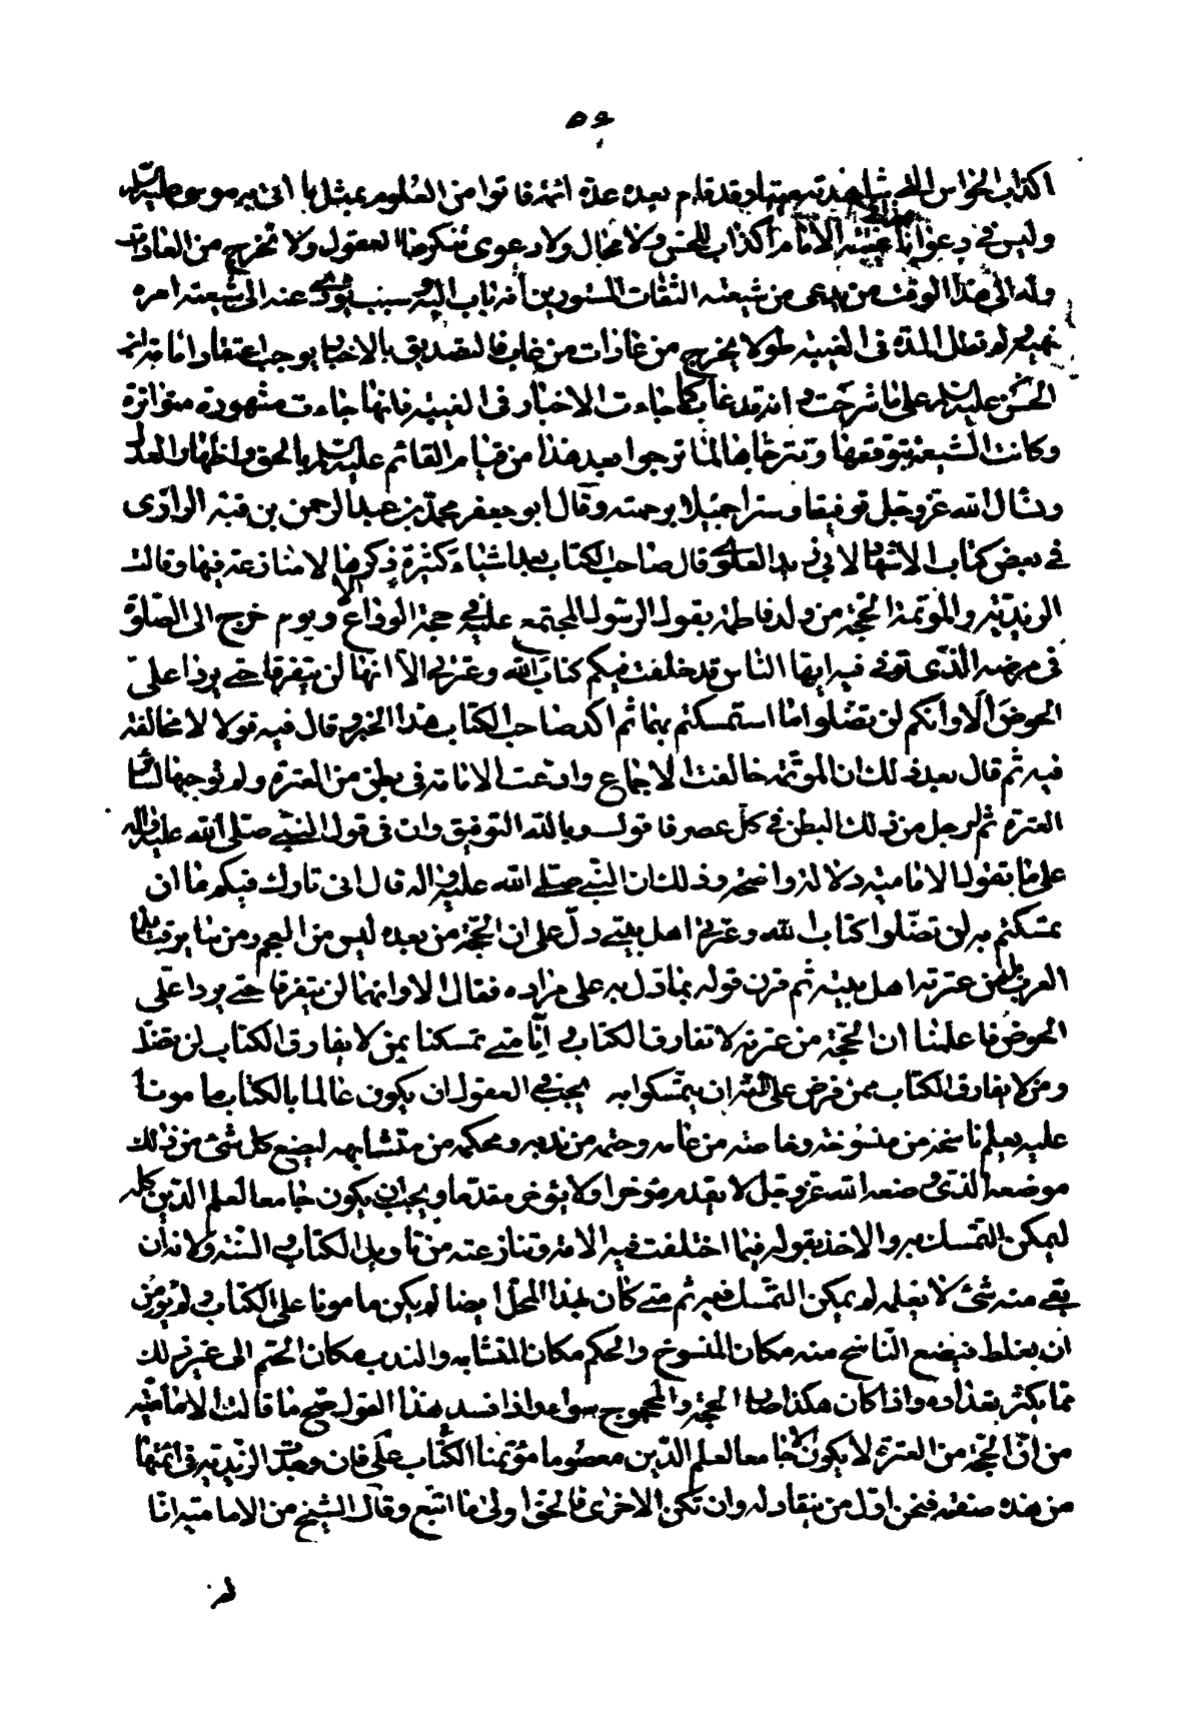 ٥٩
اكذاب الحواس التي شاهدته وقد قام بعده عدة ائمة فاتوا من العلوم بمثل ما اتى به موسى عليه السلم
وليس في دعوانا غيبة الامام اكذاب للحس ولا محال ولا دعوى تنكرها العقول ولا تخرج من العادات
وله الى هذا الوقت من يدعى من شيعته الثقات المستورين انه باب اليه وسبب يؤدى عنه الى شيعته امره
ونهيه ولم تطل المدة في الغيبة طولا يخرج من عادات من غاب فالتصديق بالاخبار يوجب اعتقاد امامة ابن
الحسن عليه السلم على ما شرحت وانه قد غاب كما جاءت الاخبار في الغيبة فانها جاءت مشهورة متواترة
وكانت الشيعة تتوقعها وتترجاها لما ترجوا بعد هذا من قيام القائم عليه السلم بالحق واظهار العدل
ونسال الله عز وجل توفيقا وسترا جميلا برحمته وقال ابو جعفر محمد بن عبد الرحمن بن قبة الرازى
في بعض كتاب الاشهاد لابي زيد العلوى قال صاحب الكتاب بعد اشياء كثيرة ذكرها لا منازعة فيها وقالت
الزيدية والمؤتمة الحجة من ولد فاطمة بقول الرسول المجتمع عليه في حجة الوداع ويوم خرج الى الصلوة
في مرضه الذى توفى فيه ايها الناس قد خلفت فيكم كتاب الله وعترتى الا انهما لن يتفرقا حتى يردا على
الحوض الا وانكم لن تضلوا ما استمسكتم بهما ثم اكد صاحب الكتاب هذا الخبر وقال فيه قولا لا مخالفة
فيه ثم قال بعد ذلك ان المؤتمة خالفت الاجماع وادعت الامامة في بطن من العترة ولم توجبها لسائر
العترة ثم لرجل من ذلك البطن في كل عصر فاقول وبالله التوفيق وان في قول النبى صلى الله عليه واله
على ما يقول الامامية دلالة واضحة وذلك ان النبى صلى الله عليه واله قال انى تارك فيكم ما ان
تمسكتم به لن تضلوا كتاب الله وعترتى اهل بيتى دل على ان الحجة من بعده ليس من العجم ومن سائر قبائل
العرب بل من عترته اهل بيته ثم قرن قوله بما دل به على مراده فقال الا وانهما لن يتفرقا حتى يردا على
الحوض فاعلمنا ان الحجة من عترته لا تفارق الكتاب وانا متى تمسكنا بمن لا يفارق الكتاب لن نضل
ومن لا يفارق الكتاب ممن فرض على الامة ان يتمسكوا به يجب في العقول ان يكون عالما بالكتاب مامونا
عليه يعلم ناسخه من منسوخه وخاصه من عامه وحتمه من ندبه ومحكمه من متشابهه ليضع كل شئ من ذلك
موضعه الذى وضعه الله عز وجل لا يقدم مؤخرا ولا يؤخر مقدما ويجب ان يكون جامعا لعلم الدين كله
ليمكن التمسك به والاخذ بقوله فيما اختلفت فيه الامة وتنازعته من تاويل الكتاب والسنة ولانه ان
بقى منه شئ لا يعلمه لم يمكن التمسك به ثم متى كان بهذا المحل ايضا لم يكن مامونا على الكتاب ولم يؤمن
ان يغلط فيضع الناسخ منه مكان المنسوخ والمحكم مكان المتشابه والندب مكان الحتم الى غير ذلك
مما يكثر تعداده واذا كان هكذا صار الحجة والمحجوج سواء واذا فسد هذا القول صح ما قالت الامامية
من ان الحجة من العترة لا يكون الا جامعا لعلم الدين معصوما مؤتمنا على الكتاب فان وجدت الزيدية في ائمتها
من هذه صفته فنحن اول من ينقاد له وان تكن الاخرى فالحق اولى ما اتبع وقال الشيخ من الامامية انا
لم